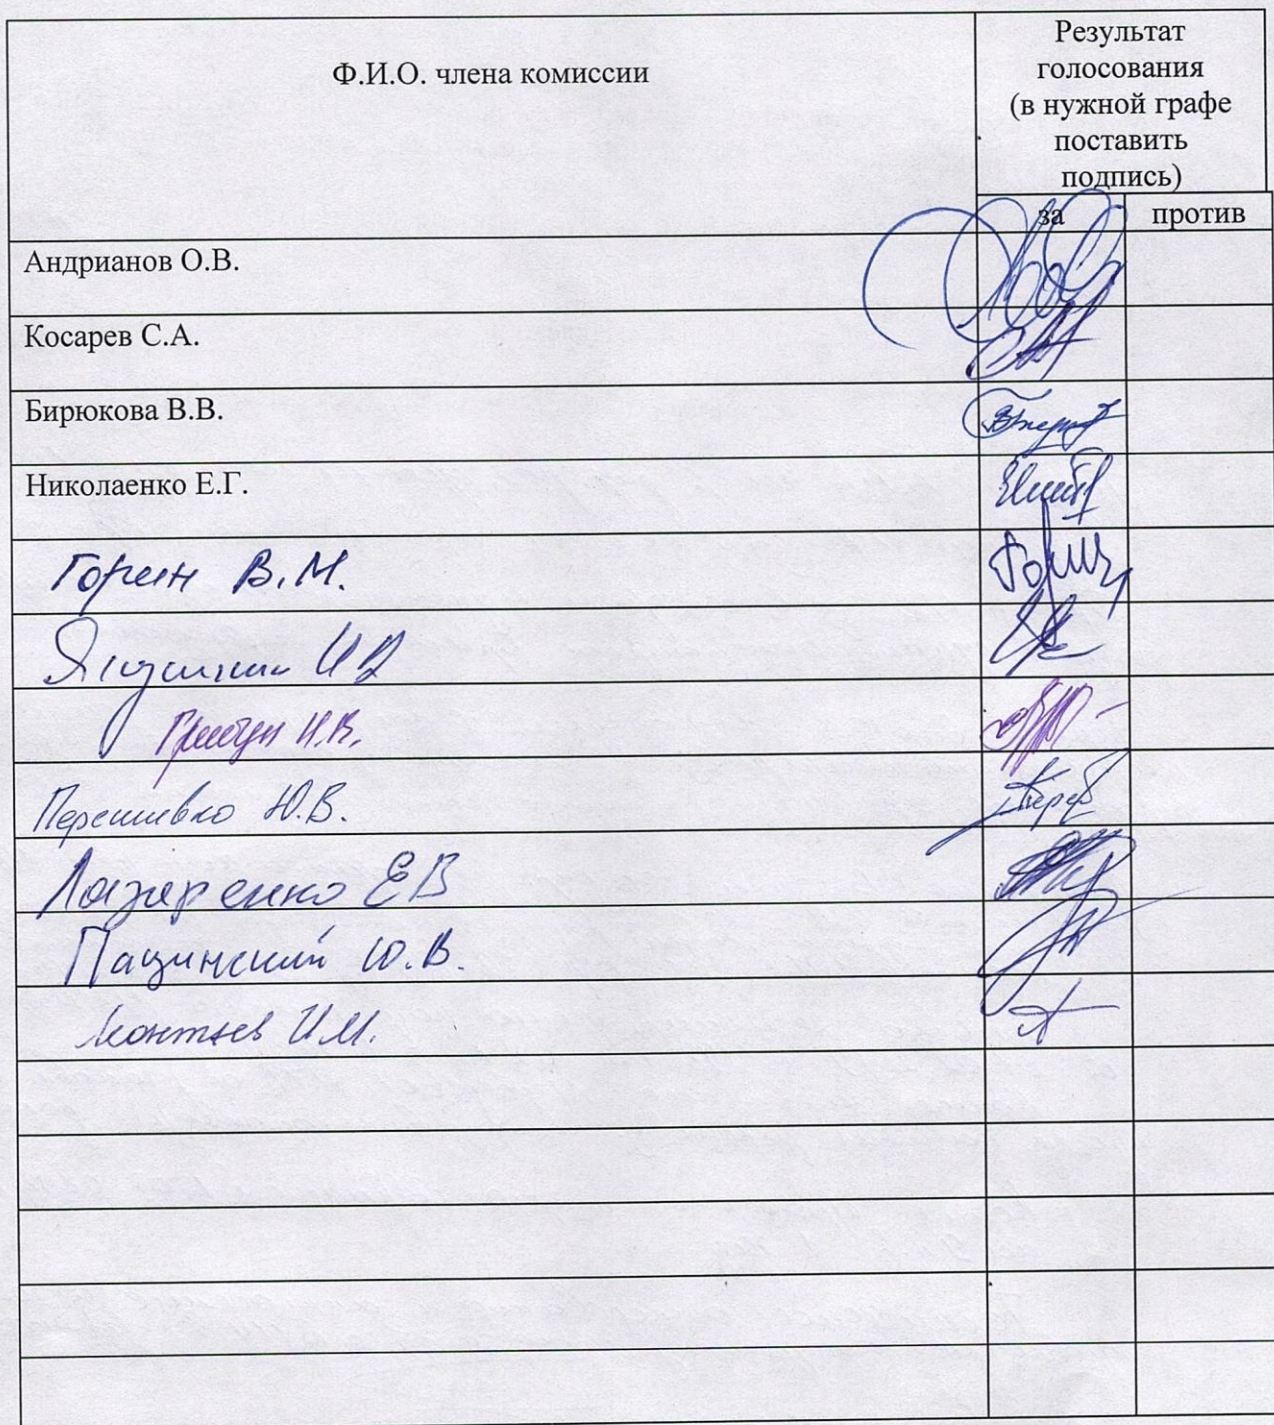 Ф.И.О. члена комиссии
Результат
голосования
(в нужной графе
поставить
подпись)
за
против
Андрианов О.В.
Косарев С.А.
Бирюкова В.В.
Николаенко Е.Г.
Горин В.М.
Н.В.
Ю.В.
Лазаренко ЕВ
Пащинский Ю.В.
И.М.